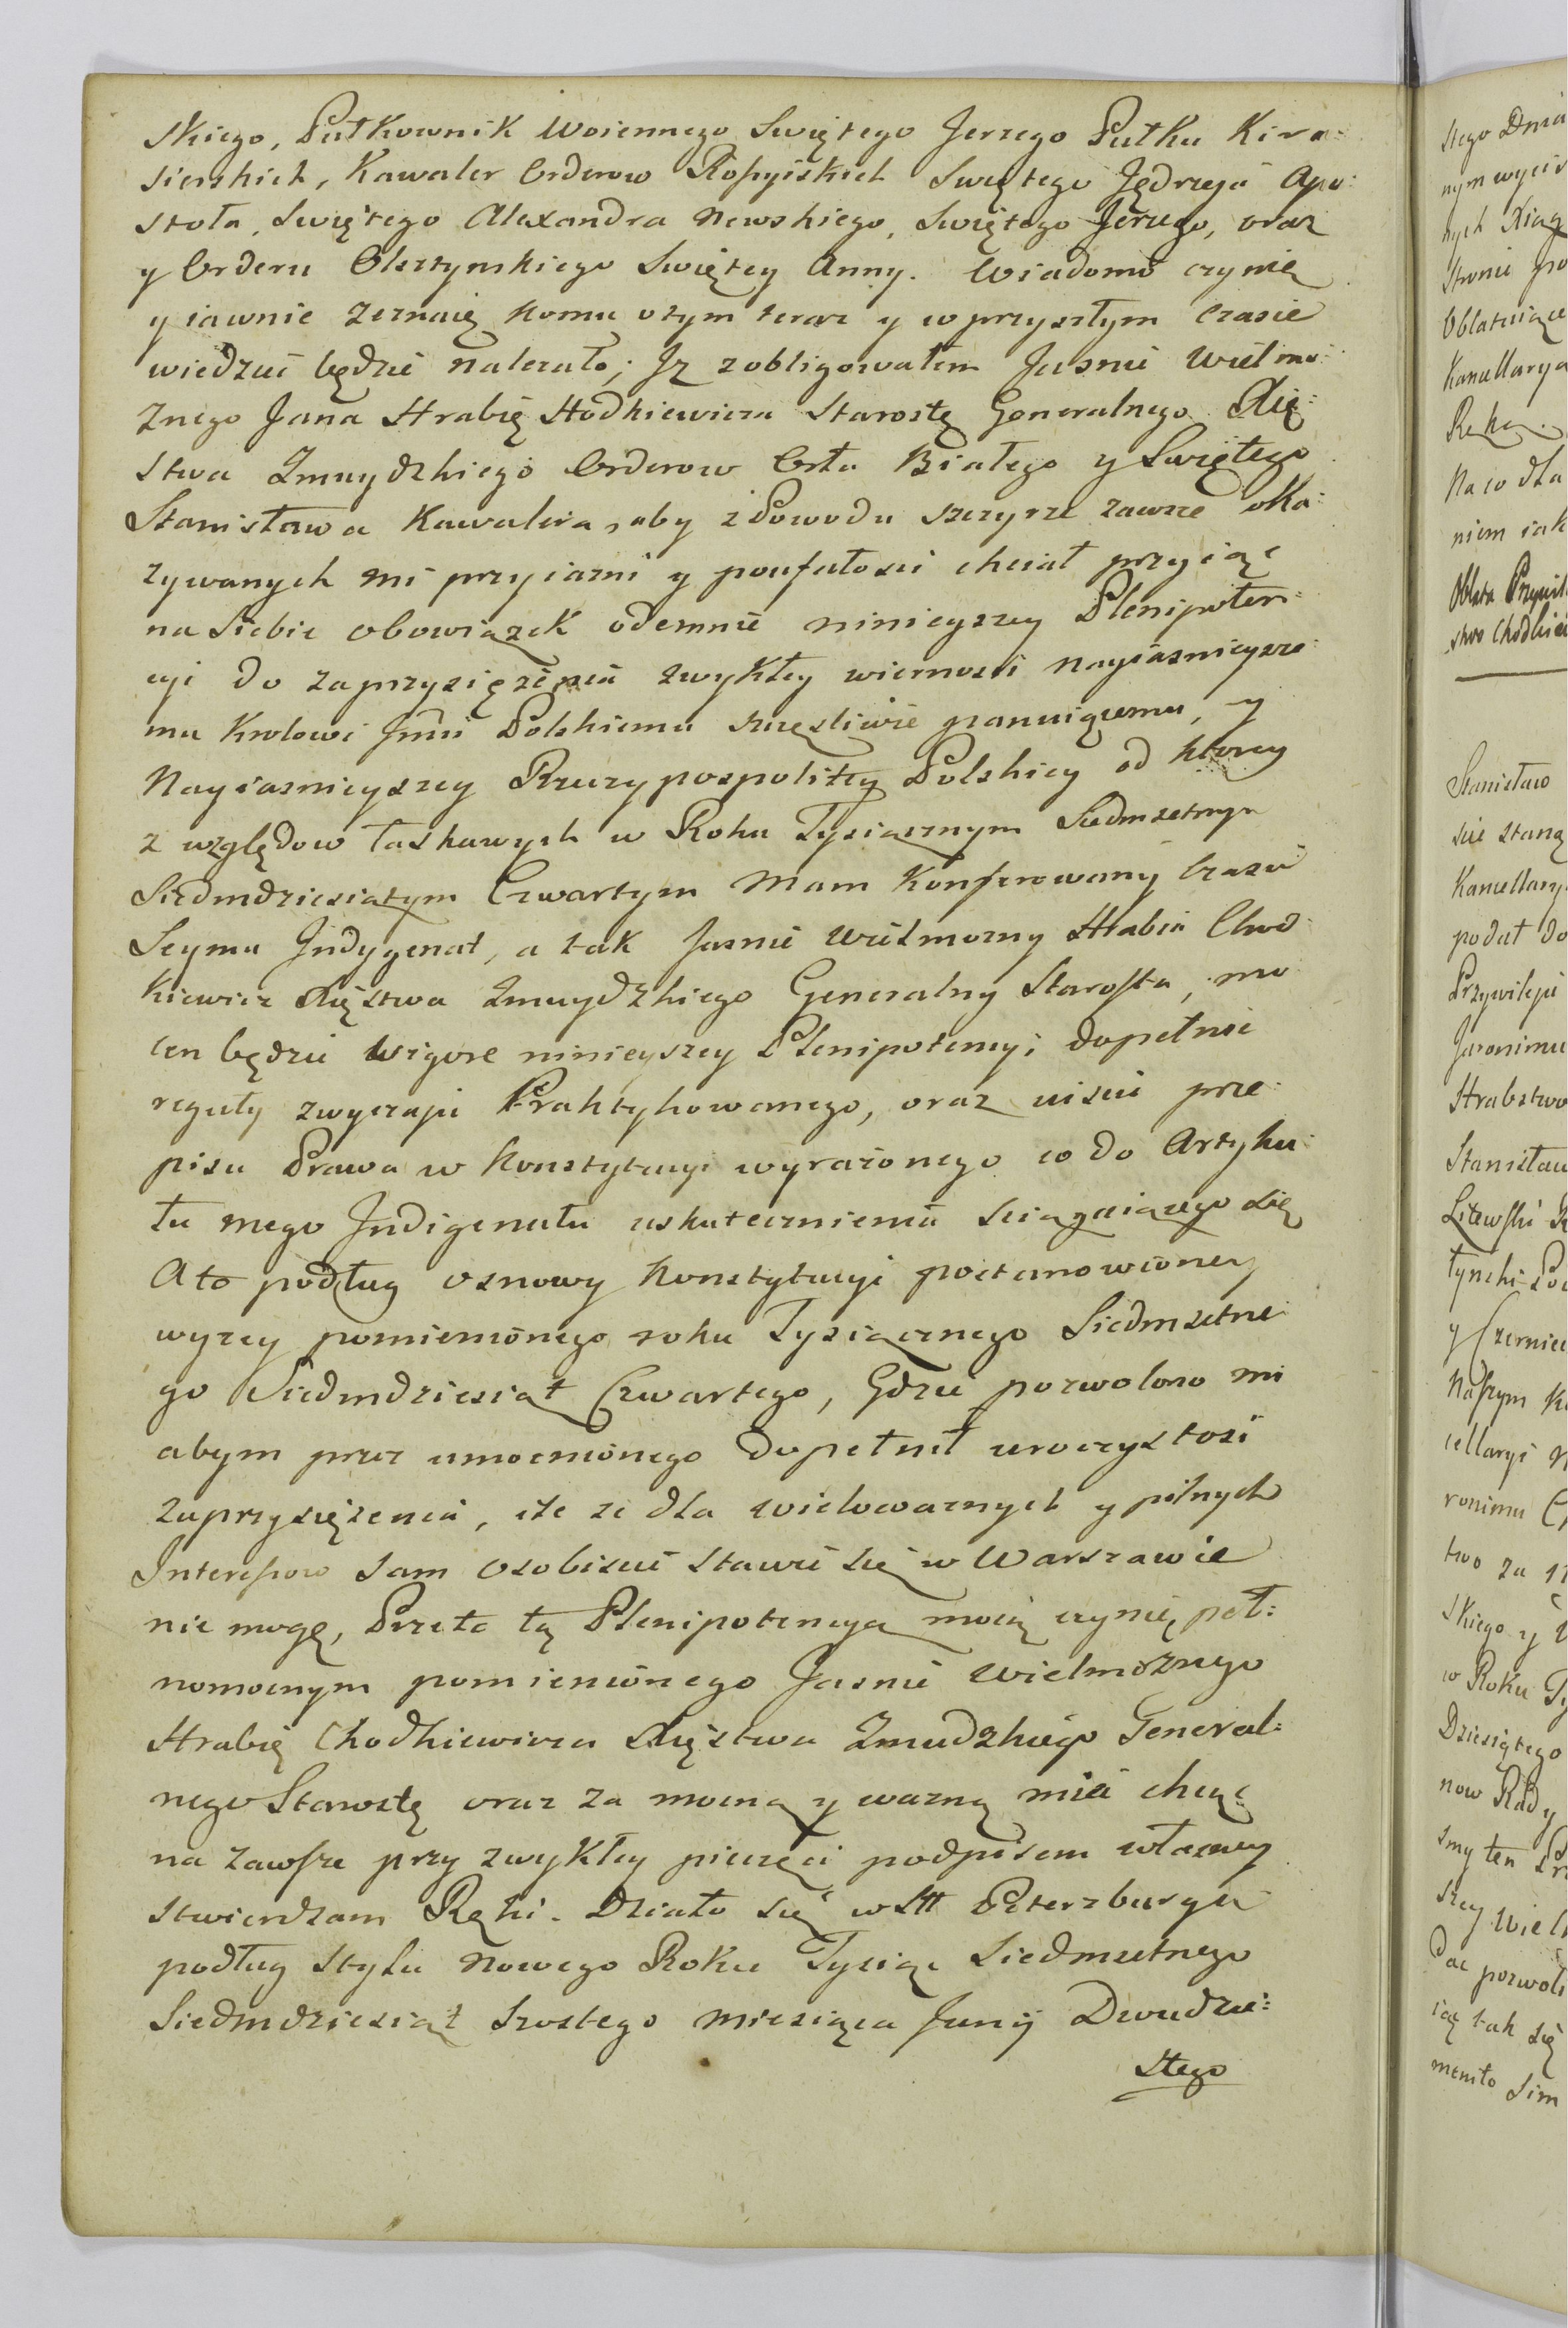 skiego, Pułkownik Woiennego Swiętego Jerzego Pułku Kira:
sierskich, Kawaler Orderow Roſsyiskich Swiętego Jędrzeja Apo:
stoła, Swiętego Alexandra Newskiego, Swiętego Jerzego, oraz
y Orderu Olsztynskiego Swiętey Anny. Wiadomo czynię
y iawnie zeznaię komu otym teraz y w przyszłym czasie
wiedzieć będzie nalezało; Jz zobligowałem Jasnie Wielmo:
znego Jana Hrabię Hodkiewicza Starostę Generalnego Xię:
stwa Zmuydzkiego Orderow Orła Białego y Swiętego
Stanisława Kawalera, aby z Powodu szczyrze zawsze oka:
zywanych mi przyiazni y poufałosci chciał przyiąć
na Siebie obowiązek odemnie ninieyszey Plenipoten:
cyi do zaprzysiężenia zwykłey wiernosci Nayiasnieysze:
mu Krolowi Jmci Polskiemu szczęsliwie panuiącemu, y
Nayiasnieyszey Rzeczypospolitey Polskiey od ktorey
z względow łaskawych w Roku Tysiącznym Siedmsetnym
Siedmdziesiątym Czwartym mam konferowany Czasu
Seymu Jndygenat, a tak Jasnie Wielmozny Hrabia Chod:
kiewicz Xięstwa Zmuydzkiego Generalny Starosta, mo:
cen będzie wigore ninieyszey Plenipotencyi dopełnić
reguły zwyczaju Praktykowanego, oraz uiscić prze:
pisu Prawa w Konstytucyi wyrażonego co do Artyku:
łu mego Jndigenatu uskutecznienia sciągaiącego się
A to podług osnowy Konstytucyi postanowioney
wyzey pomienionego roku Tysiącznego Siedmsetne:
go Siedmdziesiąt Czwartego, Gdzie pozwolono mi
abym przez umocnionego dopełnił uroczystosć
zaprzysiężenia, ile ze dla wielowaznych y pilnych
Interessow sam osobiscie stawić się w Warszawie
nie mogę, Przeto tą Plenipotencyą moią czynię peł:
nomocnym pomienionego Jasnie Wielmożnego
Hrabię Chodkiewicza Xięstwa Zmudzkiego General:
nego Starostę oraz za mocną y wazną mieć chcąc
na zawsze przy zwykłey pieczęci podpisem własney
stwierdzam Ręki. Działo się w St Petersburgu
podług Stylu Nowego Roku Tysiąc Siedmsetnego
Siedmdziesiąt Szostego Miesiąca Junij Dwudzie:
stego
stego Dnia
nym wycis
nych Xiąg
Stronie po
Oblatuiące
Kancellarya
Ręką.
Na co dla
niem iak
Oblata Przywil
stwo Chodkiew
Stanisław
sie staną
Kancellary
podał do
Przywileju
Jeronimu
Hrabstwo
Stanisław
Litewski
y Czerniec
Naszym
cellaryi
ronimu
two za
skiego y
w Roku Ty
Dziesiątego
now Rady
smy ten
szey Wiel
Dac pozwoli
iąc tak się